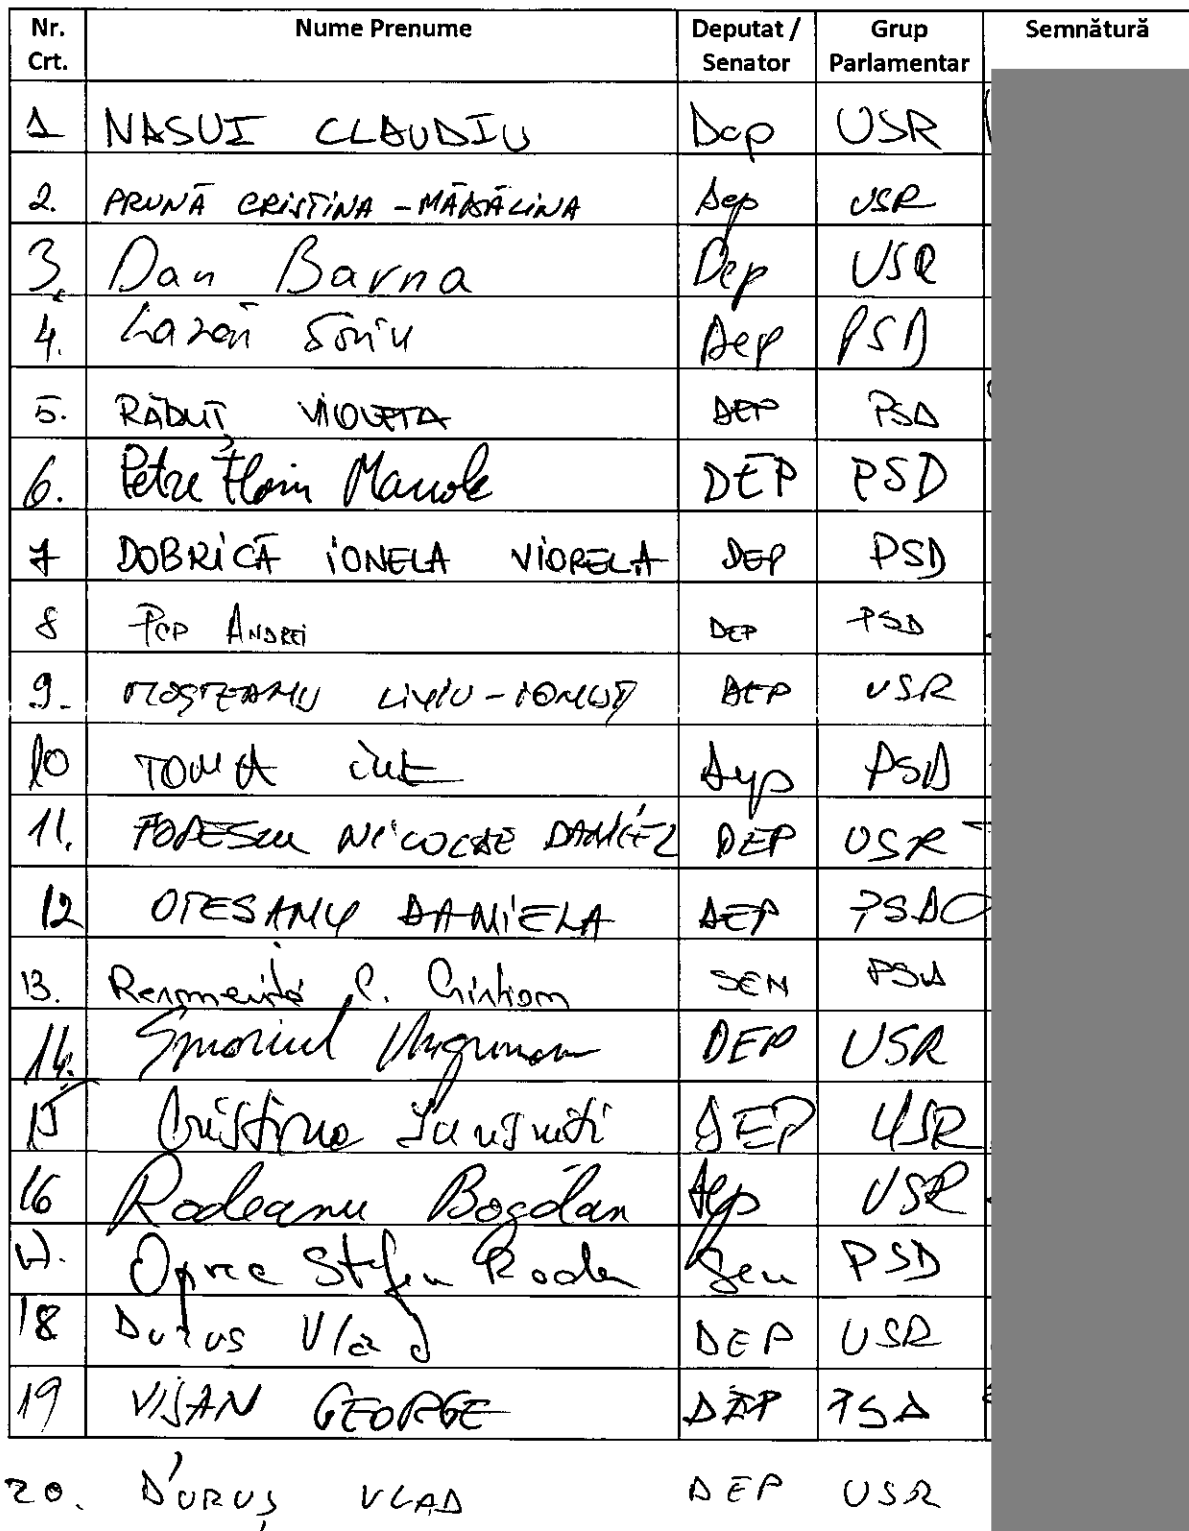 Nr. Crt. Nume Prenume Deputat / Senator Grup Parlamentar Semnătură
1 NASUI CLAUDIU Dep USR
2. PRUNĂ CRISTINA-MĂDĂLINA Dep USR
3. Dan Barna Dep USR
4. Lazăr Sorin Dep PSD
5. RĂDUȚ VIOLETA DEP PSD
6. Petre Florin Manole DEP PSD
7 DOBRICĂ IONELA VIORELA DEP PSD
8 POP ANDREI DEP PSD
9. MOȘTEANU LIVIU-IONUȚ DEP USR
10 TOMA ILIE Dep PSD
11. POPESCU NICOLAE DANIEL DEP USR
12 OTESANU DANIELA DEP PSD
13. C. Cristian SEN PSD
14. DEP USR
15 Cristina DEP USR
16 Rodeanu Bogdan Dep USR
17. Oprea Stefan Radu Sen PSD
18 Durus Vlad DEP USR
19 VIȘAN GEORGE DEP PSD
20. DURUȘ VLAD DEP USR